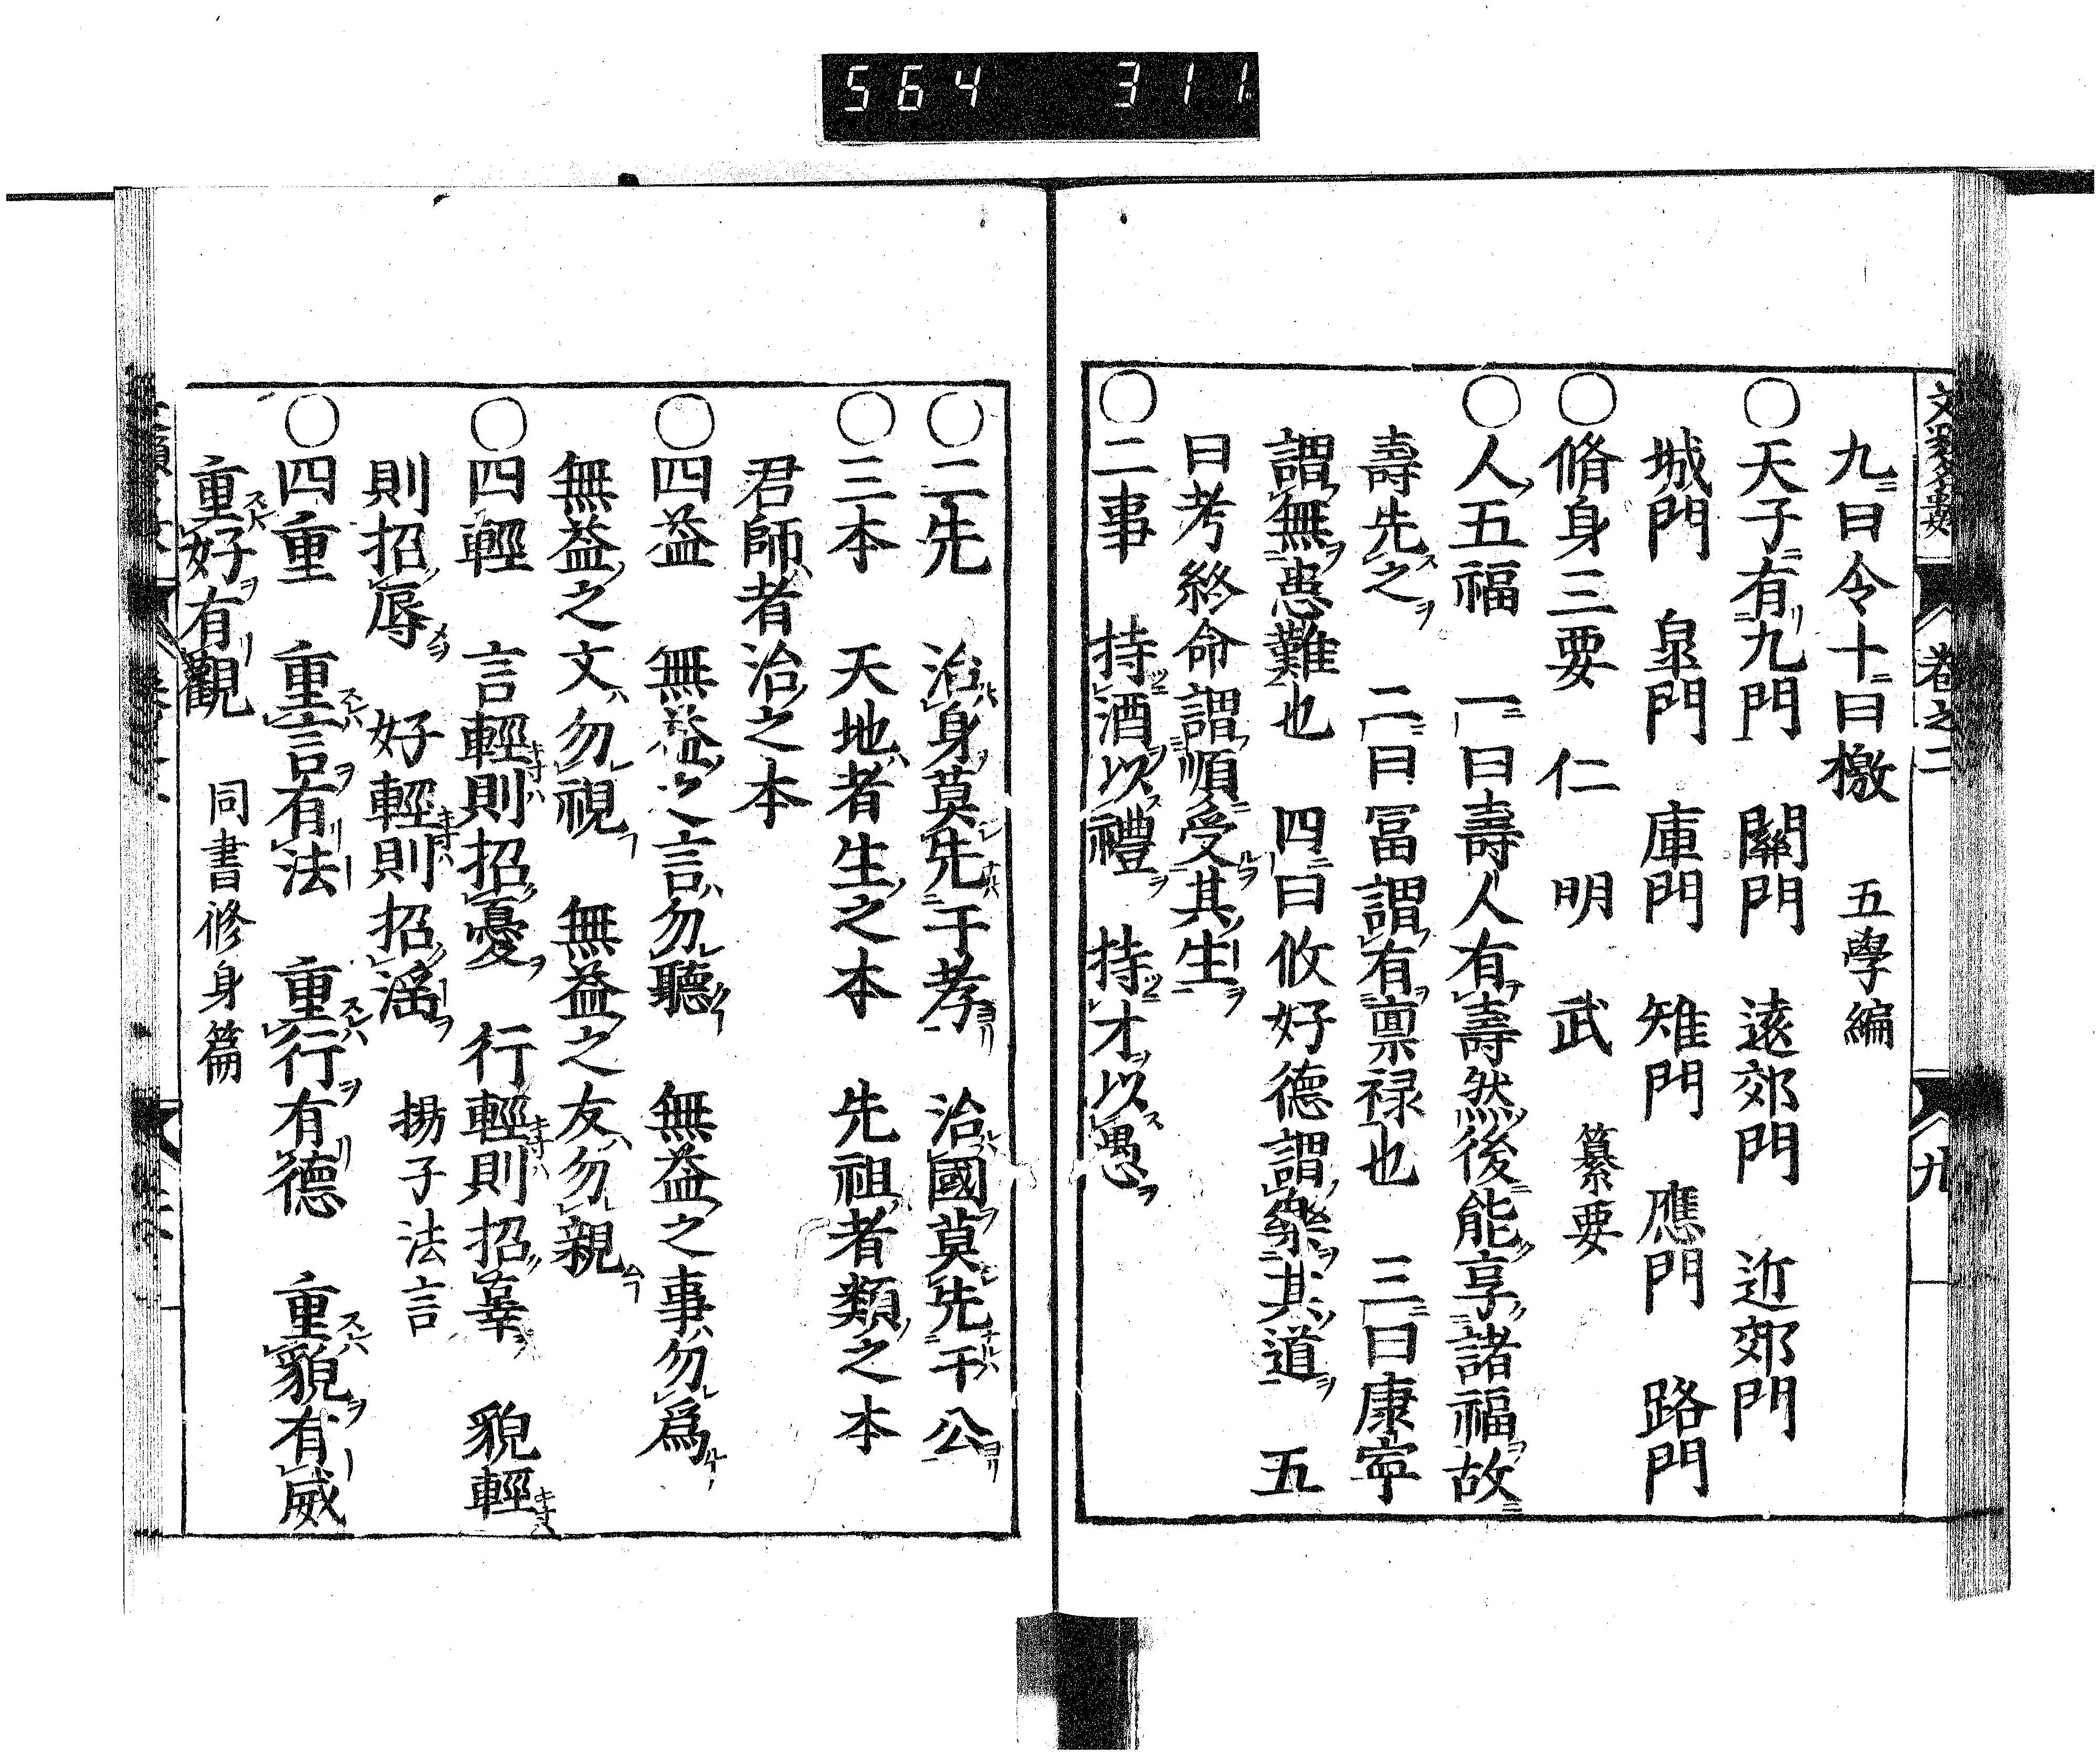 564 311
九曰令十曰檄 五學編
○天子有九門 關門 遠郊門 近郊門
城門 皐門 庫門 雉門 應門 路門
○脩身三要 仁 明 武 纂要
○人五福 一曰壽人有壽然後能享諸福故
壽先之 二曰冨謂有禀禄也 三曰康寧
謂無患難也 四曰攸好德謂樂其道 五
曰考終命謂順受其生
○二事 持酒以禮 持才以愚
○二先 治身莫先于孝 治國莫先于公
○三本 天地者生之本 先祖者類之本
君師者治之本
○四益 無益之言勿聽 無益之事勿爲
無益之文勿視 無益之友勿親
○四輕 言輕則招憂 行輕則招辜 貌輕
則招辱 好輕則招滛 揚子法言
○四重 重言有法 重行有德 重貌有威
重好有觀 同書修身篇